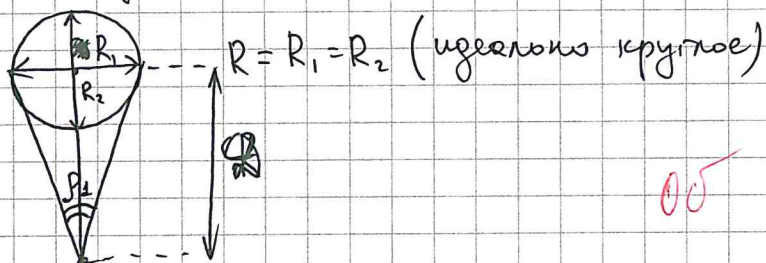 R₁ R = R₁ = R₂ (идеально круглое)
R₂
ρ1
0б